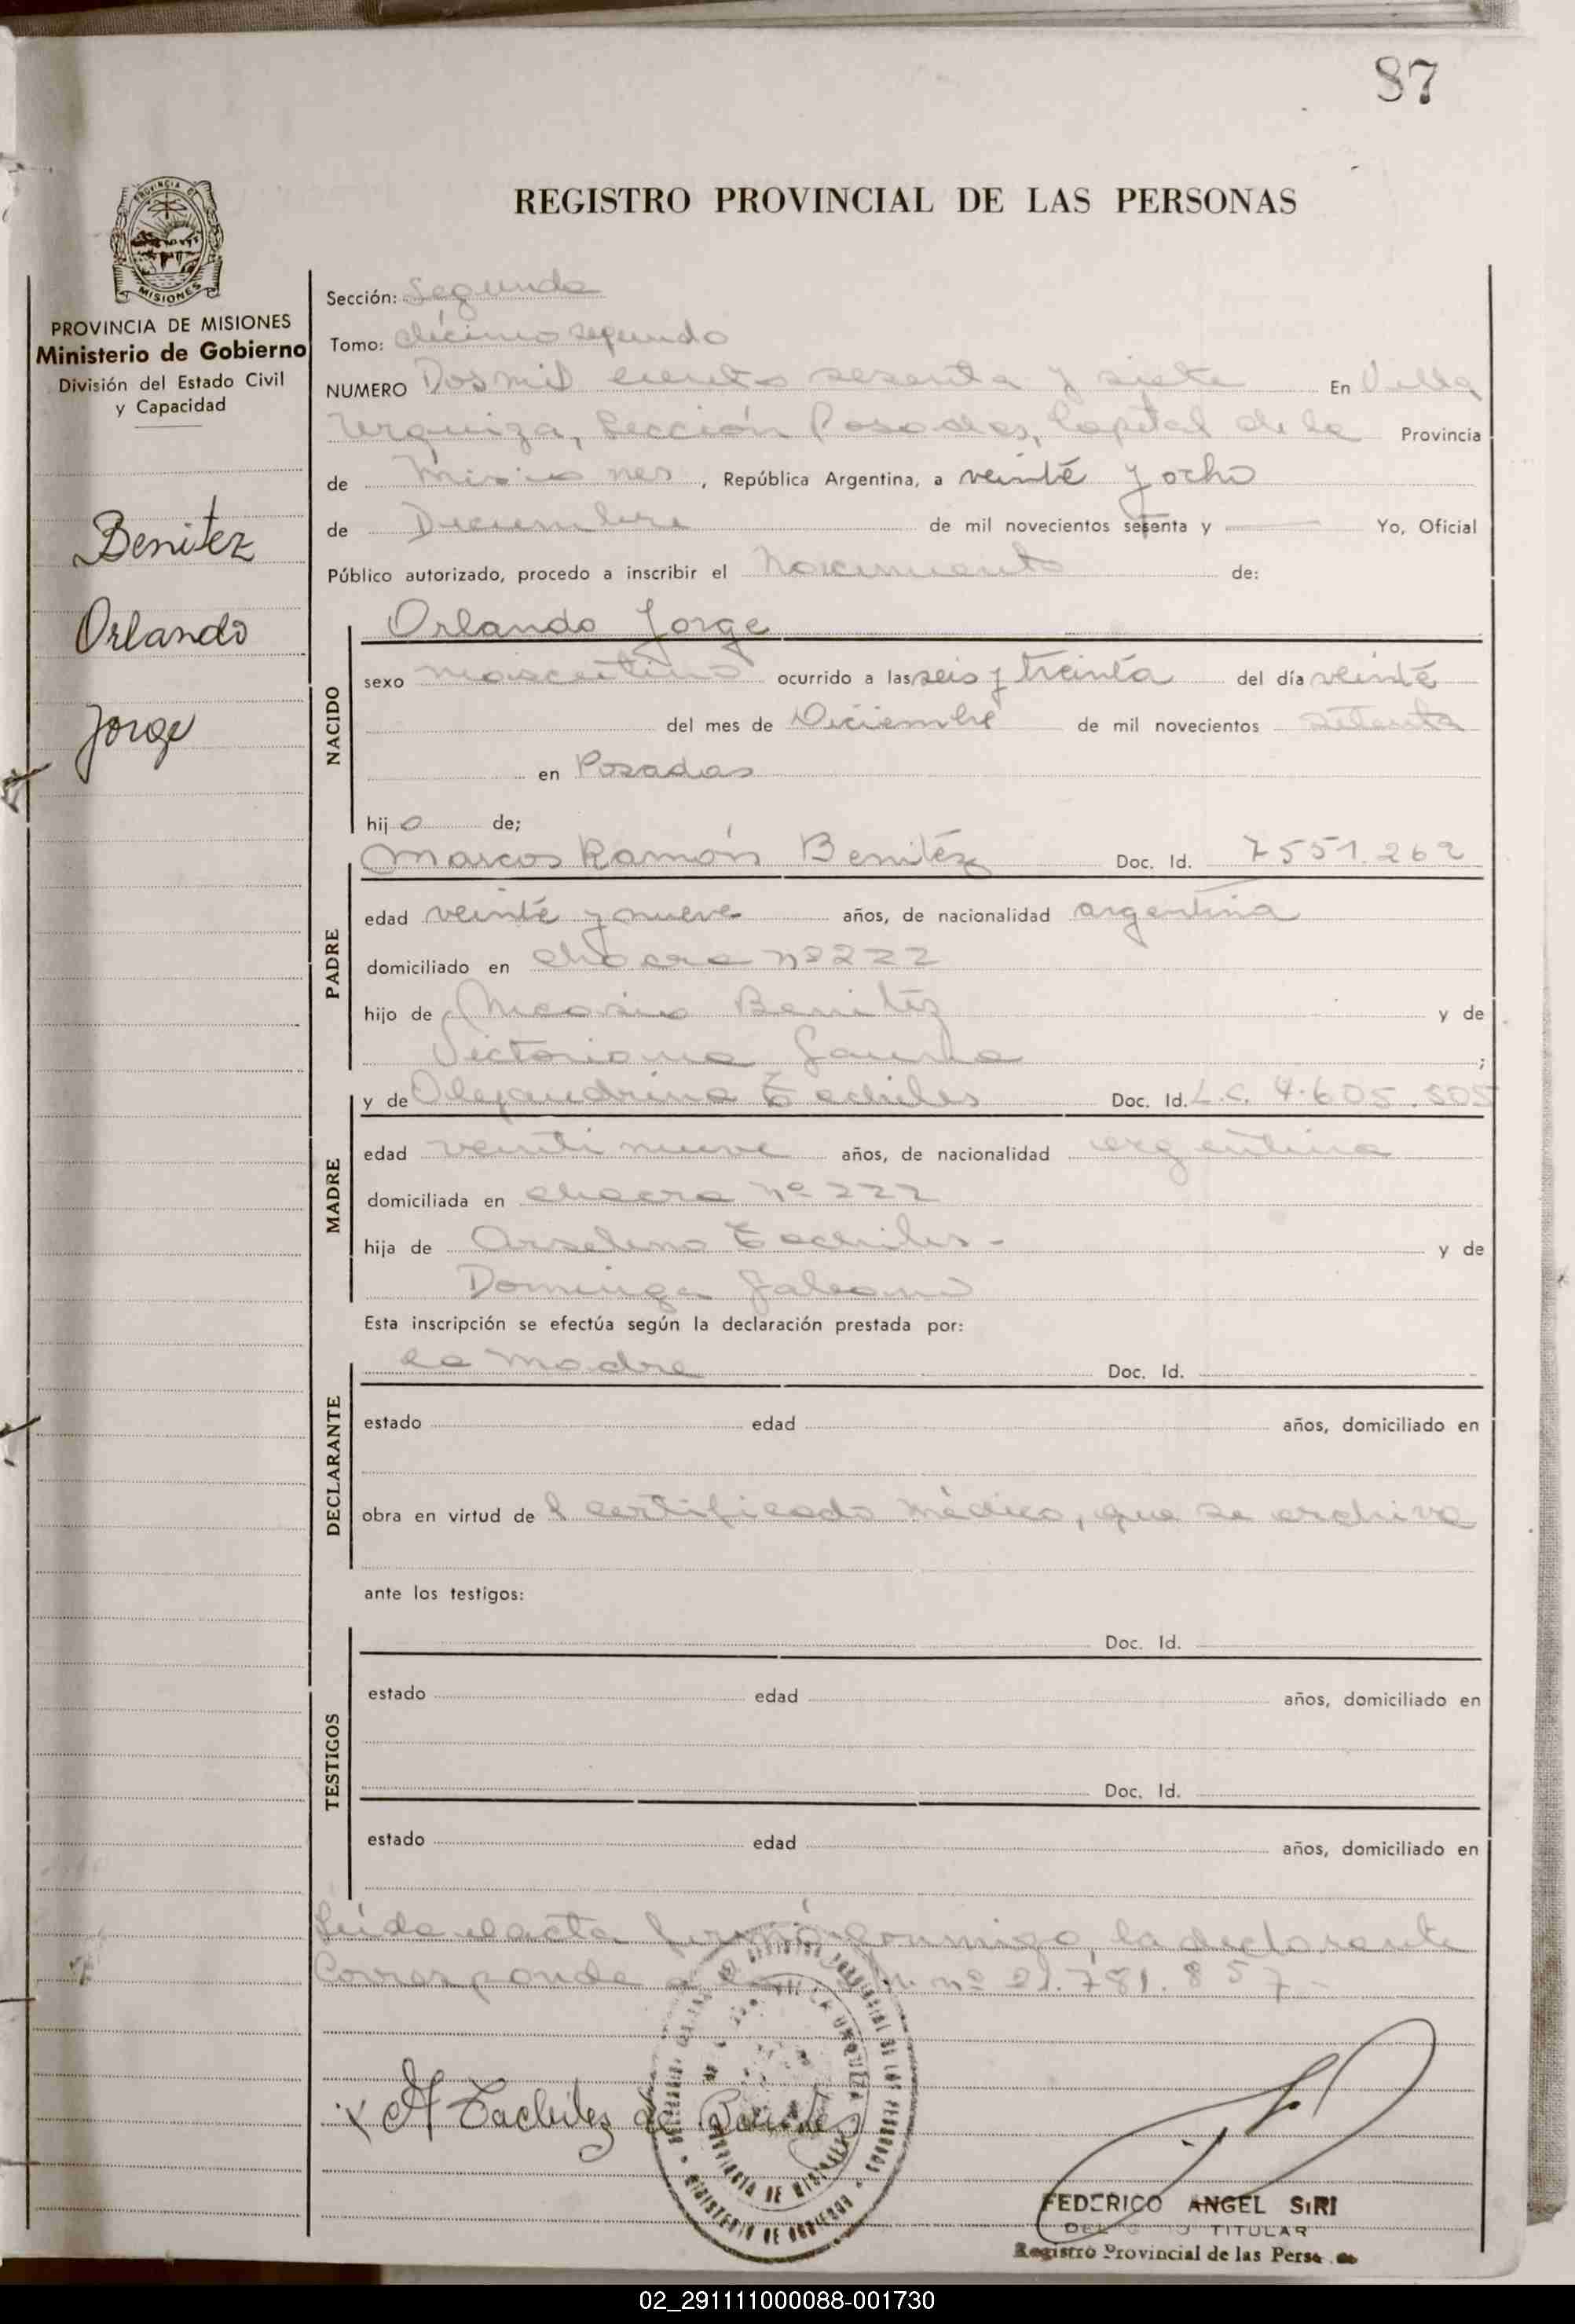 87
REGISTRO PROVINCIAL DE LAS PERSONAS
PROVINCIA DE MISIONES
PROVINCIA DE MISIONES
Ministerio de Gobierno
División del Estado Civil
y Capacidad
Benitez
Orlando
Jorge
Sección: Segunda
Tomo: décimo segundo
NUMERO Dos mil ciento sesenta y siete En Villa
Urquiza, Sección Posadas, Capital de la Provincia
de Misiones, República Argentina, a veinte y ocho
de Diciembre de mil novecientos setenta y — Yo, Oficial
Público autorizado, procedo a inscribir el Nacimiento de:
NACIDO
Orlando Jorge
sexo masculino ocurrido a las seis y treinta del día veinte
del mes de Diciembre de mil novecientos setenta
en Posadas
hijo de;
PADRE
Marcos Ramón Benitez Doc. Id. 7551.262
edad veinte y nueve años, de nacionalidad argentina
domiciliado en chacra nº 222
hijo de Benitez y de
Victoriana ;
MADRE
y de Alejandrina Doc. Id. L.C. 4.605.505
edad veinti nueve años, de nacionalidad argentina
domiciliada en chacra nº 222
hija de y de
Dominga Galeano
Esta inscripción se efectúa según la declaración prestada por:
DECLARANTE
la Madre Doc. Id.
estado edad años, domiciliado en
obra en virtud del certificado médico, que se archiva
ante los testigos:
TESTIGOS
Doc. Id.
estado edad años, domiciliado en
Doc. Id.
estado edad años, domiciliado en
Leída el acta firmó conmigo, la declarante
Corresponde a nº 21.781.857-
FEDERICO ANGEL SIRI
TITULAR
Registro Provincial de las Perso
02_291111000088-001730